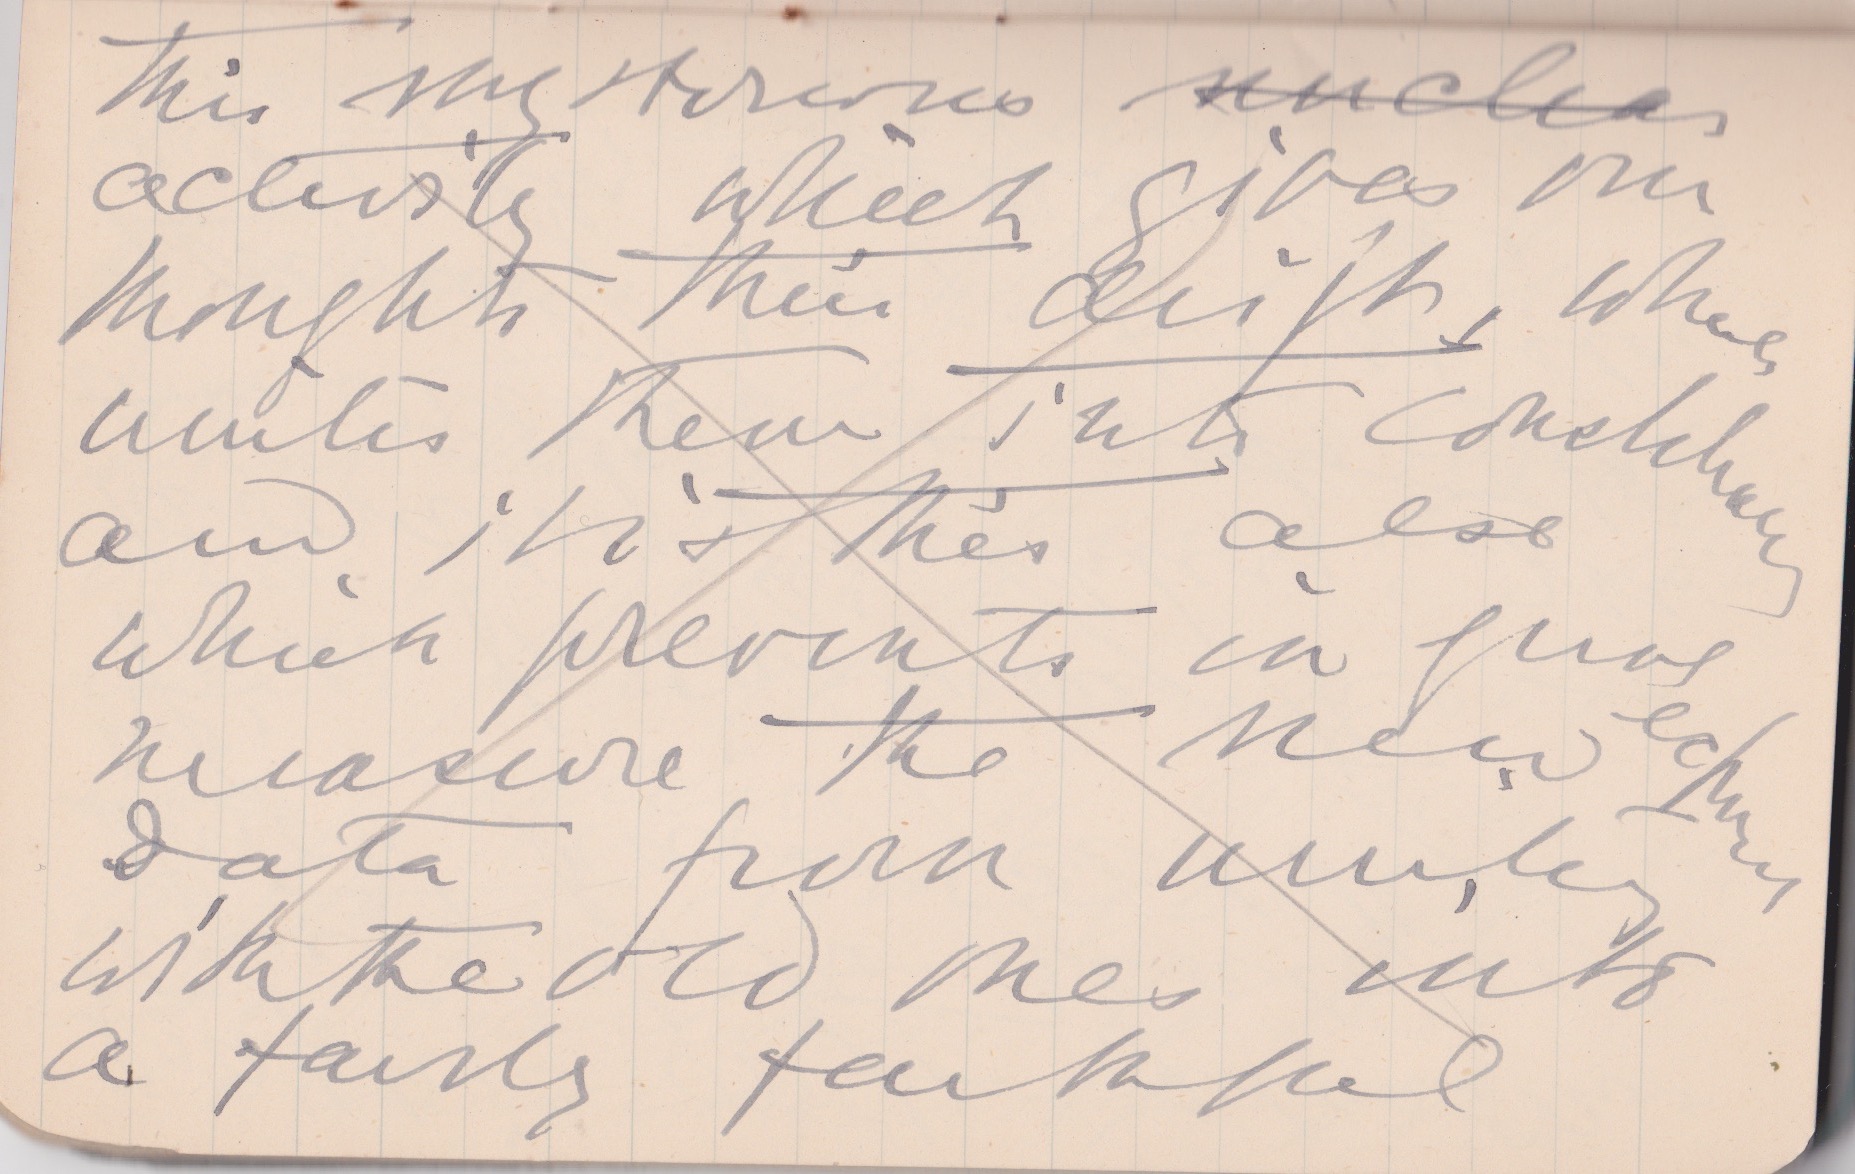 this mysterious nuclear
activity which gives our
thoughts their drift, which
unites them into constellations
and it is this also
which prevents in great
measure the new
data from uniting
with the old ones into
a fairly faithful